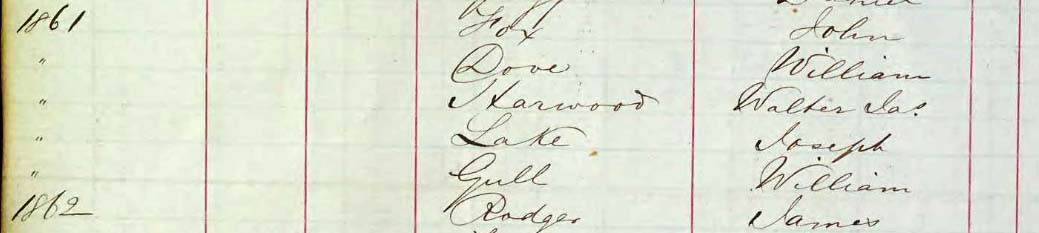 Daniel
1861 Fox John
" Dove William
" Harwood Walter Jas.
" Lake Joseph
" Gull William
1862 Rodger James